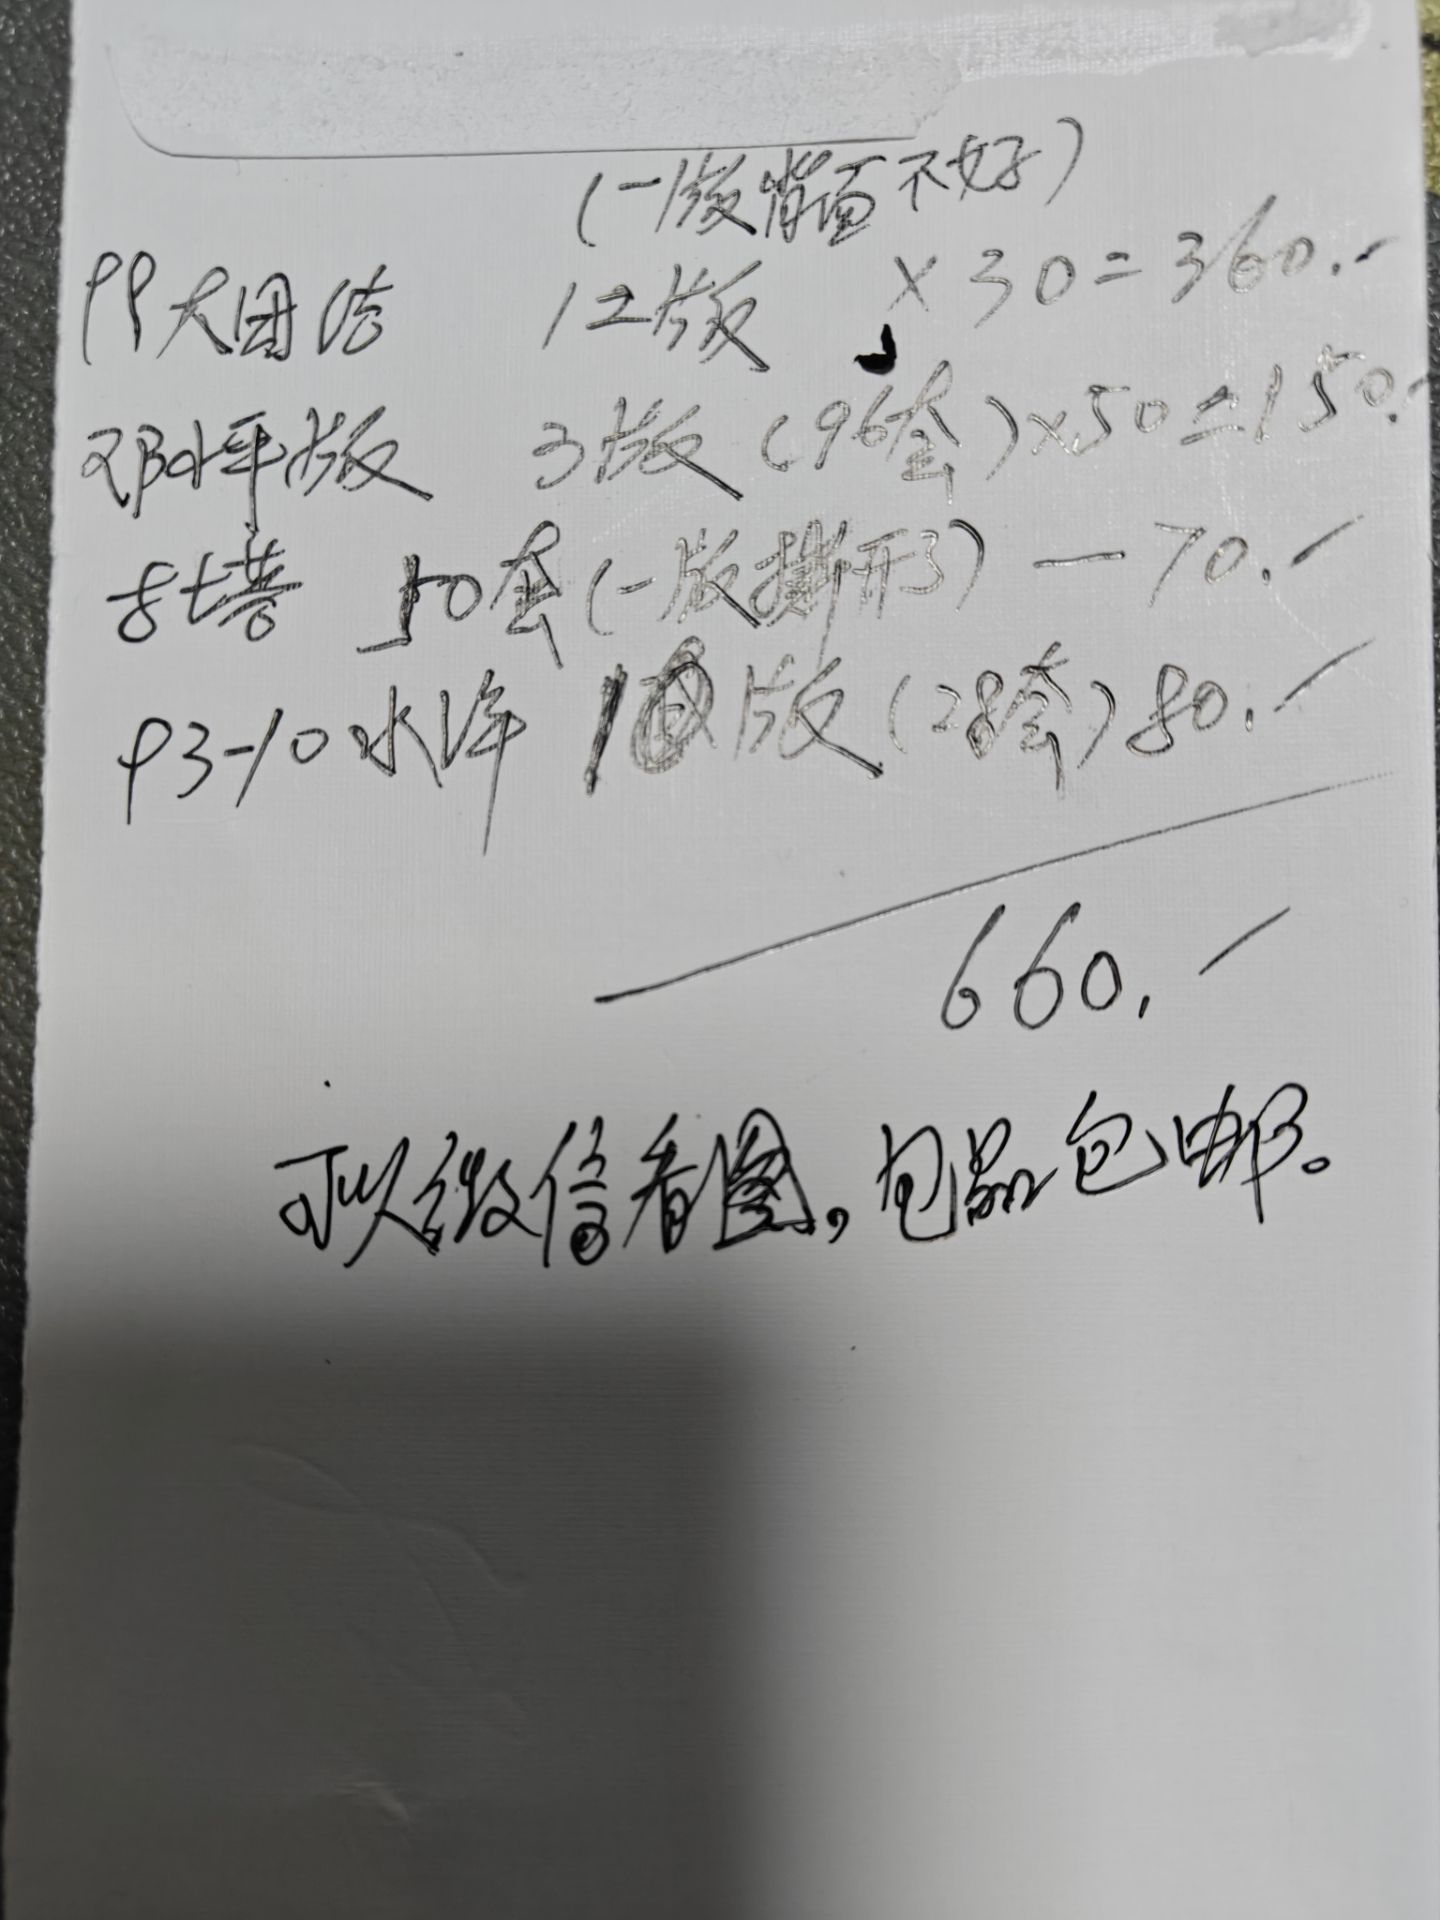 (一版背面不好)
99大团结 12版 ×30=360.-
邓小平版 3版(96套)×50=150.-
古塔 50套(一版撕开了) — 70.-
93-10水浒 1版(28套)80.-
660.-
可以微信看图,包品包邮。